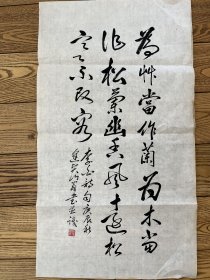 為艸當作蘭為木當
作松蘭幽香風遠松
寒不改容
李白詩句庚辰秋